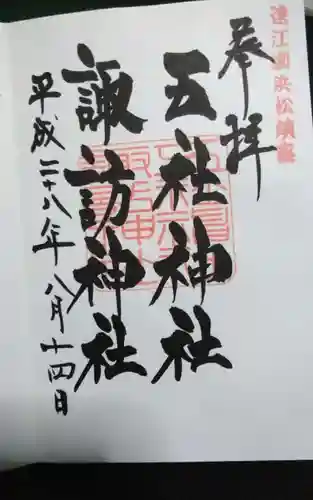 遠江国浜松鎮座
奉拝
五社神社
諏訪神社
平成二十八年八月十四日